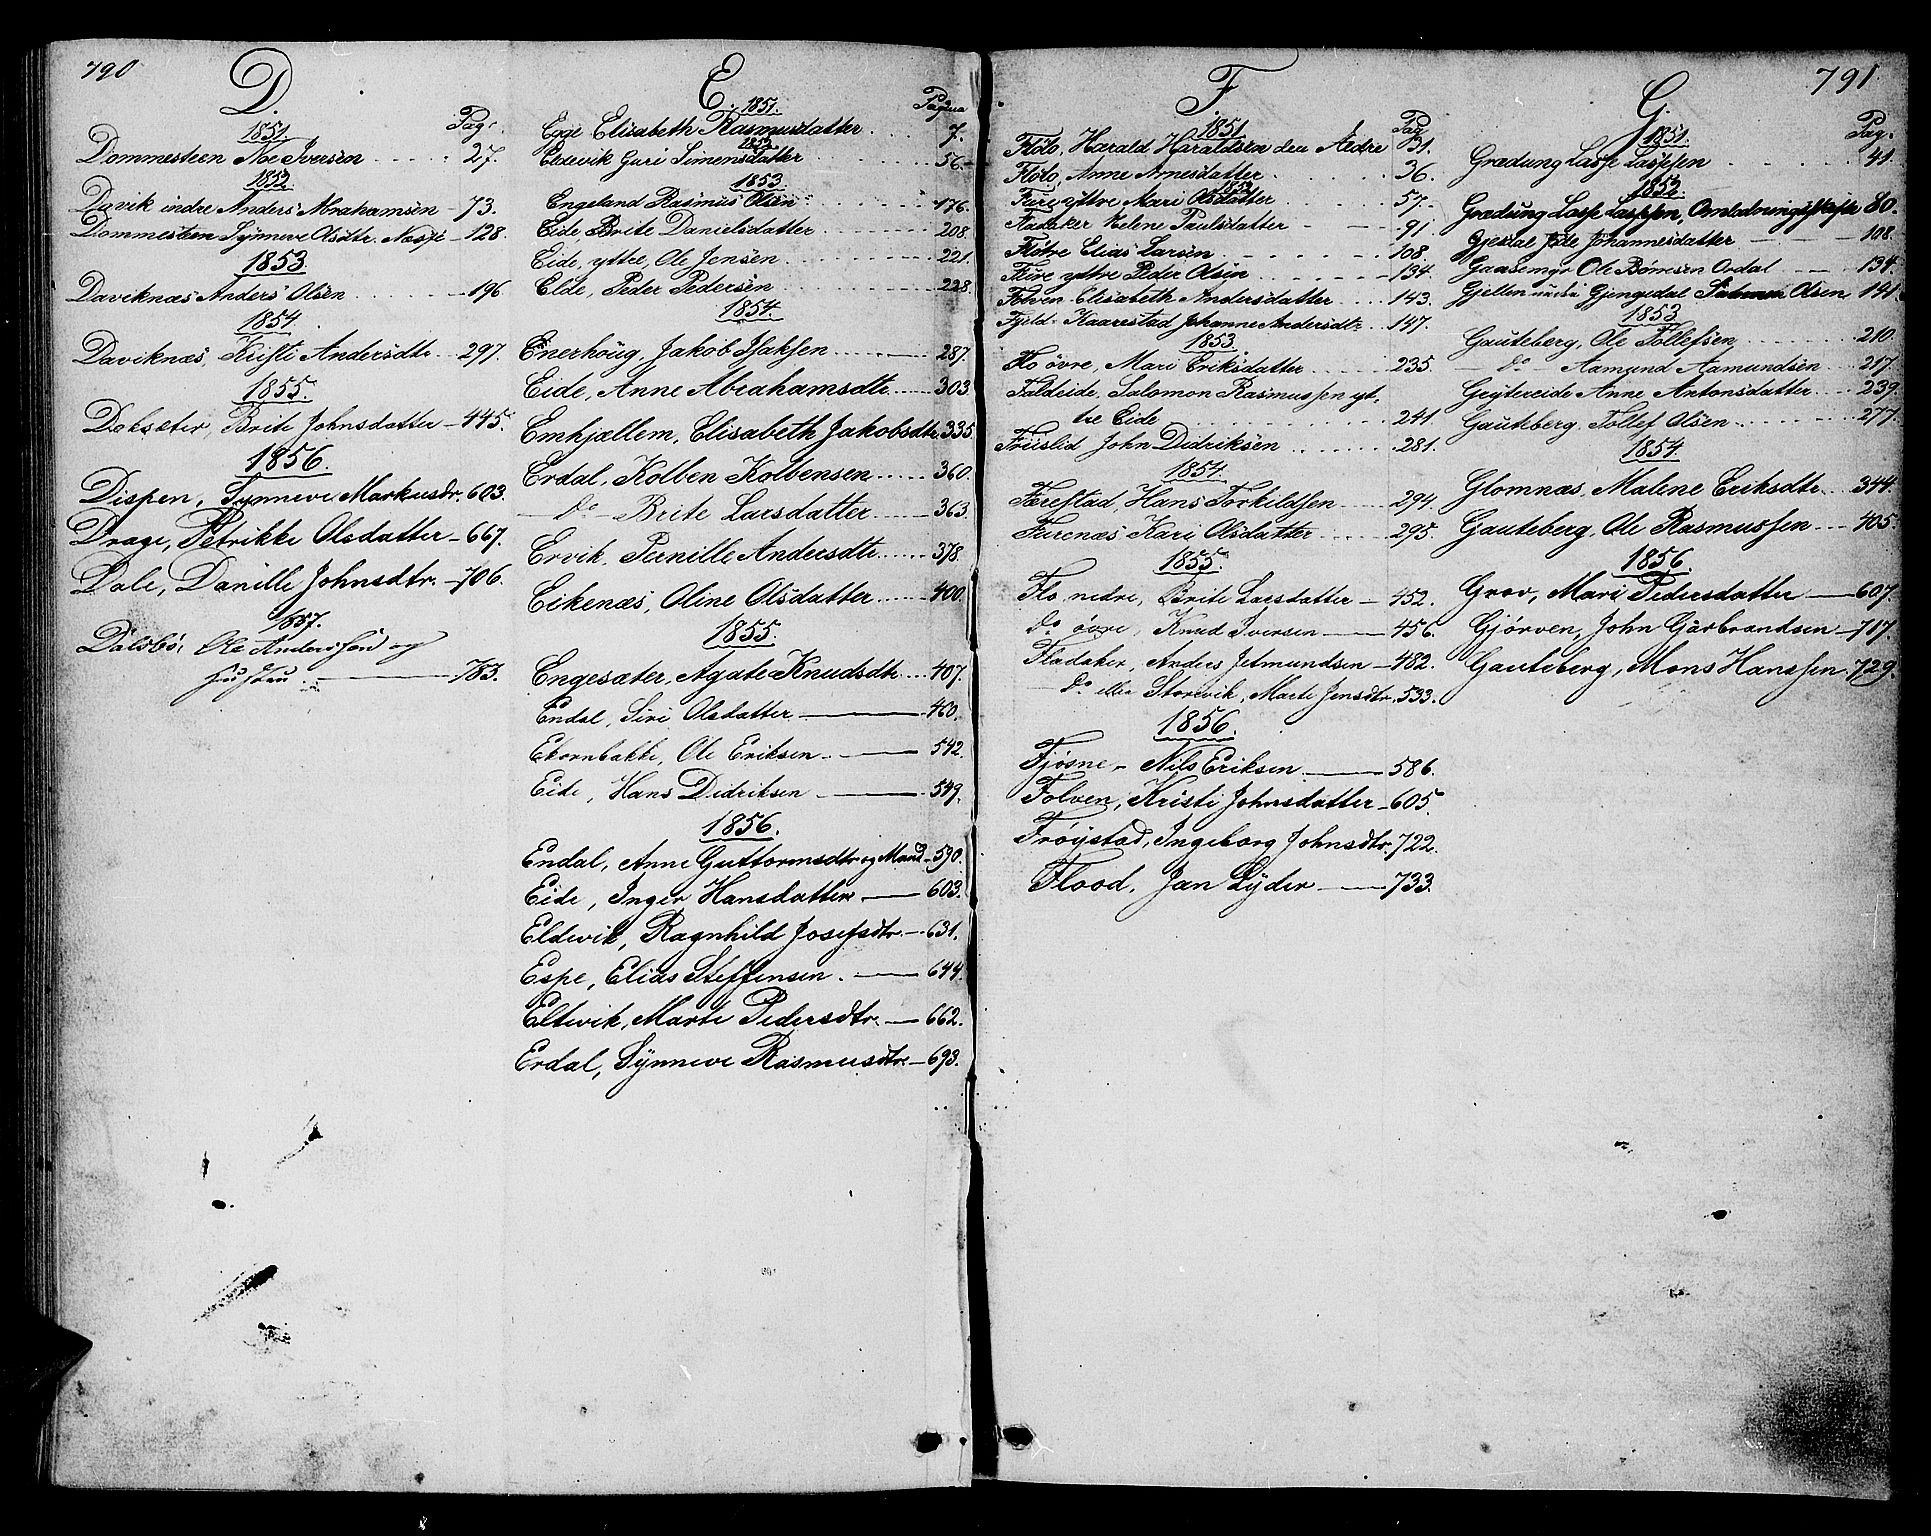 790
D.
Pag.
1851.
Dommesteen Noe Iversen 27.
1852.
Davik indre Anders Abrahamsen 73.
Dommesteen Synneve Olsdtr. 128.
1853
Daviknæs Anders Olsen 196
1854.
Daviknæs, Kristi Andersdtr. 297.
1855.
Doksæter, Brite Johnsdatter 445.
1856.
Dispen, Synneve Markusdr. 603.
Drage, Petrikke Olsdatter 667.
Dale, Danille Johnsdtr. 706.
1857.
Dalsbø, Ole Anderssøn og
Hustru 783.
E.
Pagina
1851.
Egge Elisabeth Rasmusdatter 7.
1852
Eldevik Guri Simensdatter 56
1853
Engeland Rasmus Olsen 176.
Eide, Brite Danielsdatter 208
Eide, yttre, Ole Jensen 221.
Eide, Peder Pedersen 228
1854.
Enerhöug, Jakob Isaksen 287.
Eide, Anne Abrahamsdtr. 303.
Emhjællem, Elisabeth Jakobsdtr. 335
Erdal, Kolben Kolbensen 360.
do Brite Larsdatter 363.
Ervik, Pernille Andersdtr. 378.
Eikenæs, Oline Olsdatter 400.
1855.
Engesæter, Agate Knudsdtr. 407.
Endal, Siri Olsdatter 460.
Ekornbakke, Ole Eriksen 542.
Eide, Hans Didriksen 549.
1856.
Endal, Anne Guttormsdtr og Mand 590.
Eide, Inger Hansdatter 603.
Eldevik, Ragnhild Josefsdtr. 631.
Espe, Elias Steffensen 644.
Eltevik, Marte Pedersdtr. 662.
Erdal, Synneve Rasmusdtr. 693.
791.
F.
Pag
1851
Flöto, Harald Haraldsen den Ældre 31.
Flöto, Anne Arnesdatter 36.
1852
Füre ytre Mari Olsdatter 57.
Fladaker Helene Paulsdatter 91
Fløtre Elias Larsen 108.
Füre ytre Peder Olsen 134.
Folven Elisabeth Andersdatter 143.
Fjeld Kaarestad Johanne Andersdtr. 147.
1853
Flo øvre, Mari Eriksdatter 235.
Faldeide, Salomon Rasmussen yt-
tre Eide 241.
Friislid John Didriksen 281.
1854.
Færestad, Hans Torkildsen 294.
Furenæs Kari Olsdatter 295.
1855.
Flo nedre, Brite Larsdatter 452.
do øvre, Knud Iversen 456.
Fladaker, Anders Jetmundsen 482.
do eller Storevik, Marte Jensdtr. 533.
1856.
Fjøsne Nils Eriksen 586.
Folven, Kristi Johnsdatter 605.
Frøystad, Ingeborg Johnsdtr. 722.
Flood, Jan Lyder 733.
G.
Pag.
1851.
Grædung Lasse Lassen 41
1852.
Grædung Lasse Lassen, Omlodningsskifte 80.
Gjesdal Johannesdatter 108.
Gaasemyr Ole Bønesen Ordal 134.
Gjellen Gjengedal Salomon Olsen 191
1853
Gauteberg, Ole Tollefsen 210.
do Aamund Aamundsen 217.
Geytereide Anne Antonsdatter 239.
Gauteberg, Tollef Olsen 277.
1854.
Glomnæs, Malene Eriksdtr. 344.
Gauteberg, Ole Rasmussen 405.
1856.
Grov, Mari Pedersdatter 607.
Gjørven, John Garbrandsen 717.
Gauteberg, Mons Hanssen 729.